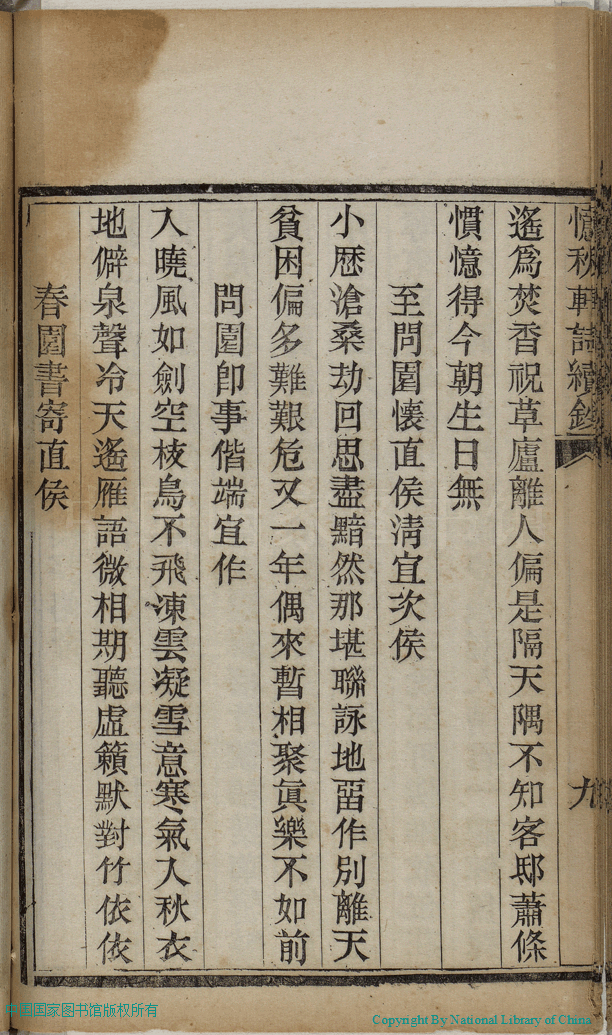 憶秋軒詩續鈔
九
遙爲焚香祝草廬離人偏是隔天隅不知客邸蕭條
慣憶得今朝生日無
至問園懷直侯淸宜次侯
小歷滄桑劫回思盡黯然那堪聯詠地畱作別離天
貧困偏多難艱危又一年偶來暫相聚眞樂不如前
問園卽事偕端宜作
入曉風如劍空枝鳥不飛凍雲凝雪意寒氣入秋衣
地僻泉聲冷天遙雁語微相期聽虛籟默對竹依依
春園書寄直侯
中国国家图书馆版权所有
Copyright By National Library of China